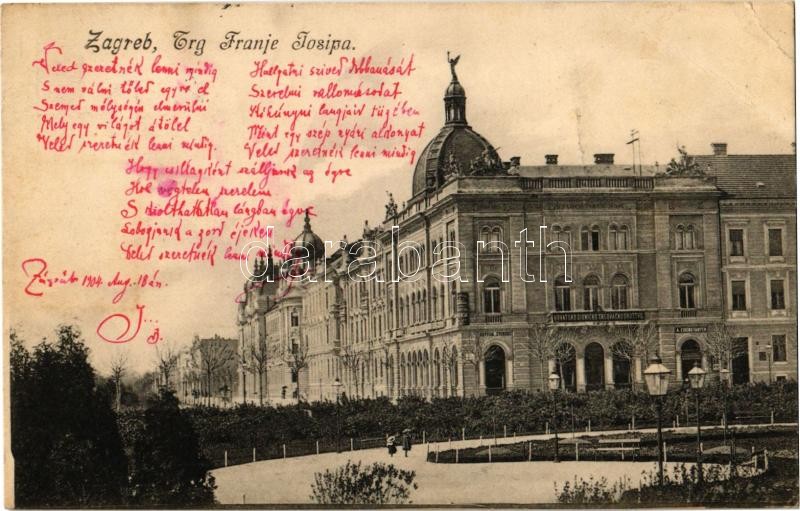 Zagreb, Trg Franje Josipa.
Veled szeretnék lenni mindig
S nem válni tőled egyre él
Szemed mélységén elmerülni
Mely egy világot átölel
Veled szeretnék lenni mindig.
Hallgatni szived dobbanását
Szerelmi vallomásodat
Kihúnyni lángjaiv tüzében
Mint egy szép nyári áldozat
Veled szeretnék lenni mindig
Hogy csillagként szálljunk az égre
Hol végtelen szerelem
S olthatatlan lángban égve
Lobogjunk a zord éjeken
Veled szeretnék lenni mindig
Zágráb 1904. Aug. 18án.
J... B.
darabanth